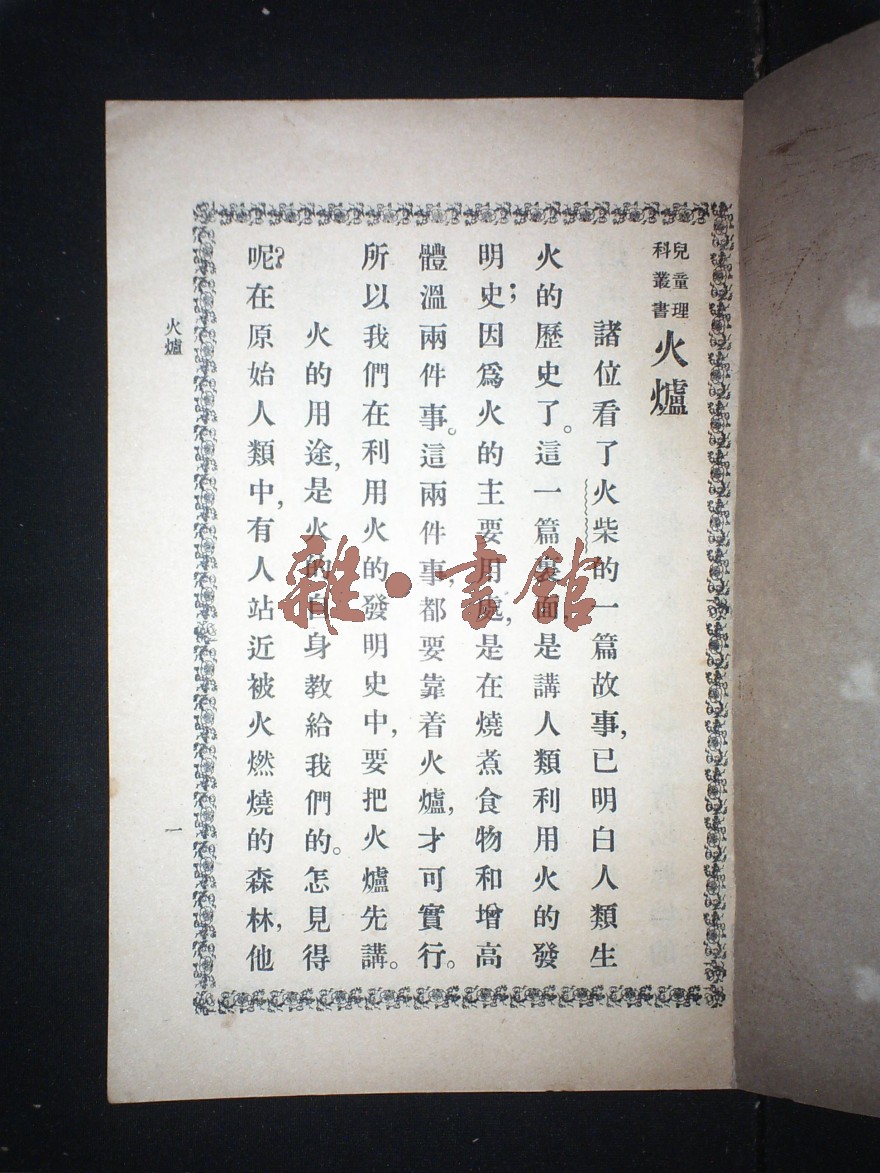 兒童理
科叢書
火爐
諸位看了火柴的一篇故事,已明白人類生
火的歷史了。這一篇裏面,是講人類利用火的發
明史;因爲火的主要用處,是在燒煮食物和增高
體溫兩件事。這兩件事,都要靠着火爐,才可實行。
所以我們在利用火的發明史中,要把火爐先講。
火的用途,是火的自身教給我們的。怎見得
呢?在原始人類中,有人站近被火燃燒的森林,他
火爐
一
雜·書館